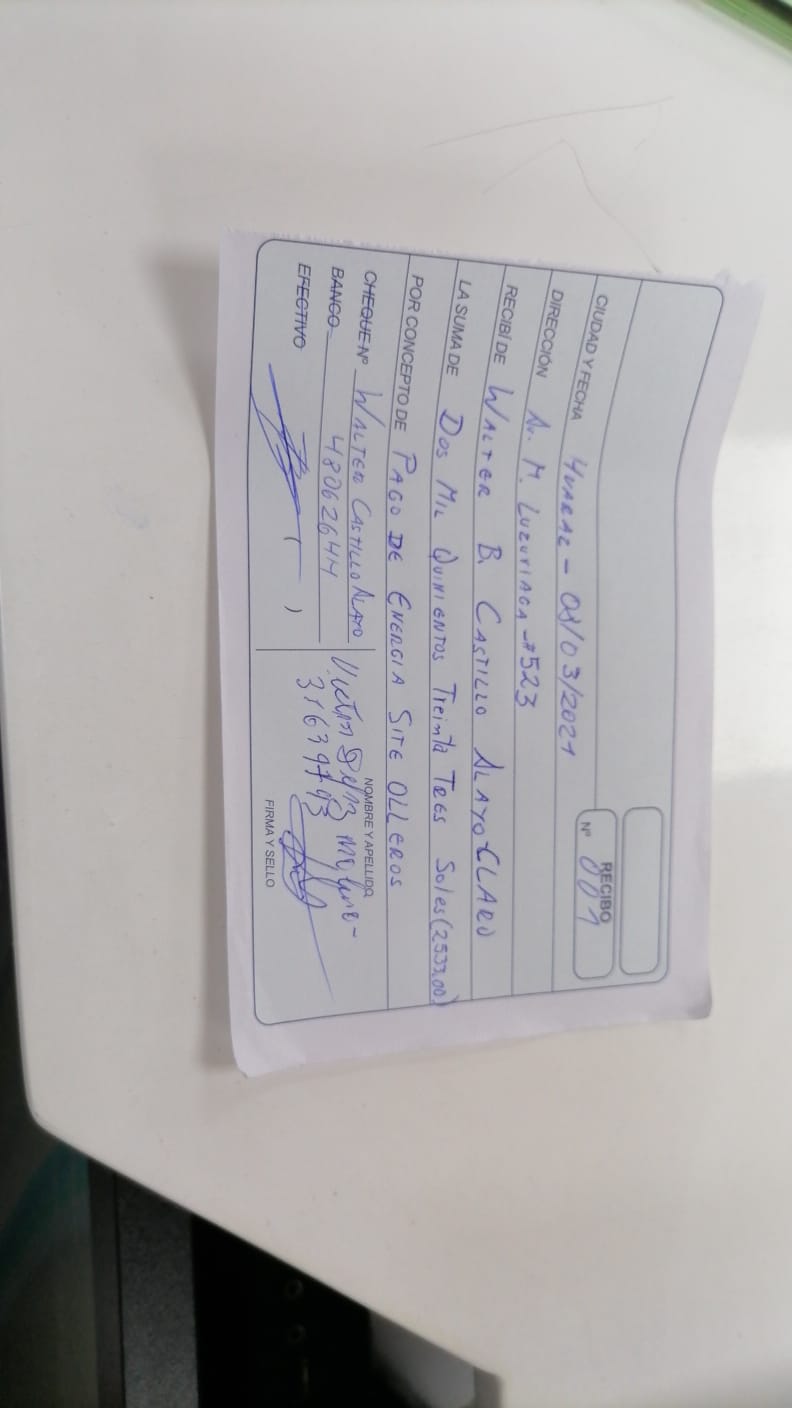 RECIBO
Nº 001
CIUDAD Y FECHA HUARAZ - 08/03/2021
DIRECCIÓN Av. M. LUZURIAGA - #523
RECIBÍ DE WALTER B. CASTILLO ALAYO - CLARO
LA SUMA DE DOS MIL QUINIENTOS Treinta TRES Soles (2533.00)
POR CONCEPTO DE PAGO DE ENERGIA SITE OLLEROS
CHEQUE Nº WALTER CASTILLO ALAYO
BANCO 48062644
EFECTIVO ( )
Victor
NOMBRE Y APELLIDO
FIRMA Y SELLO